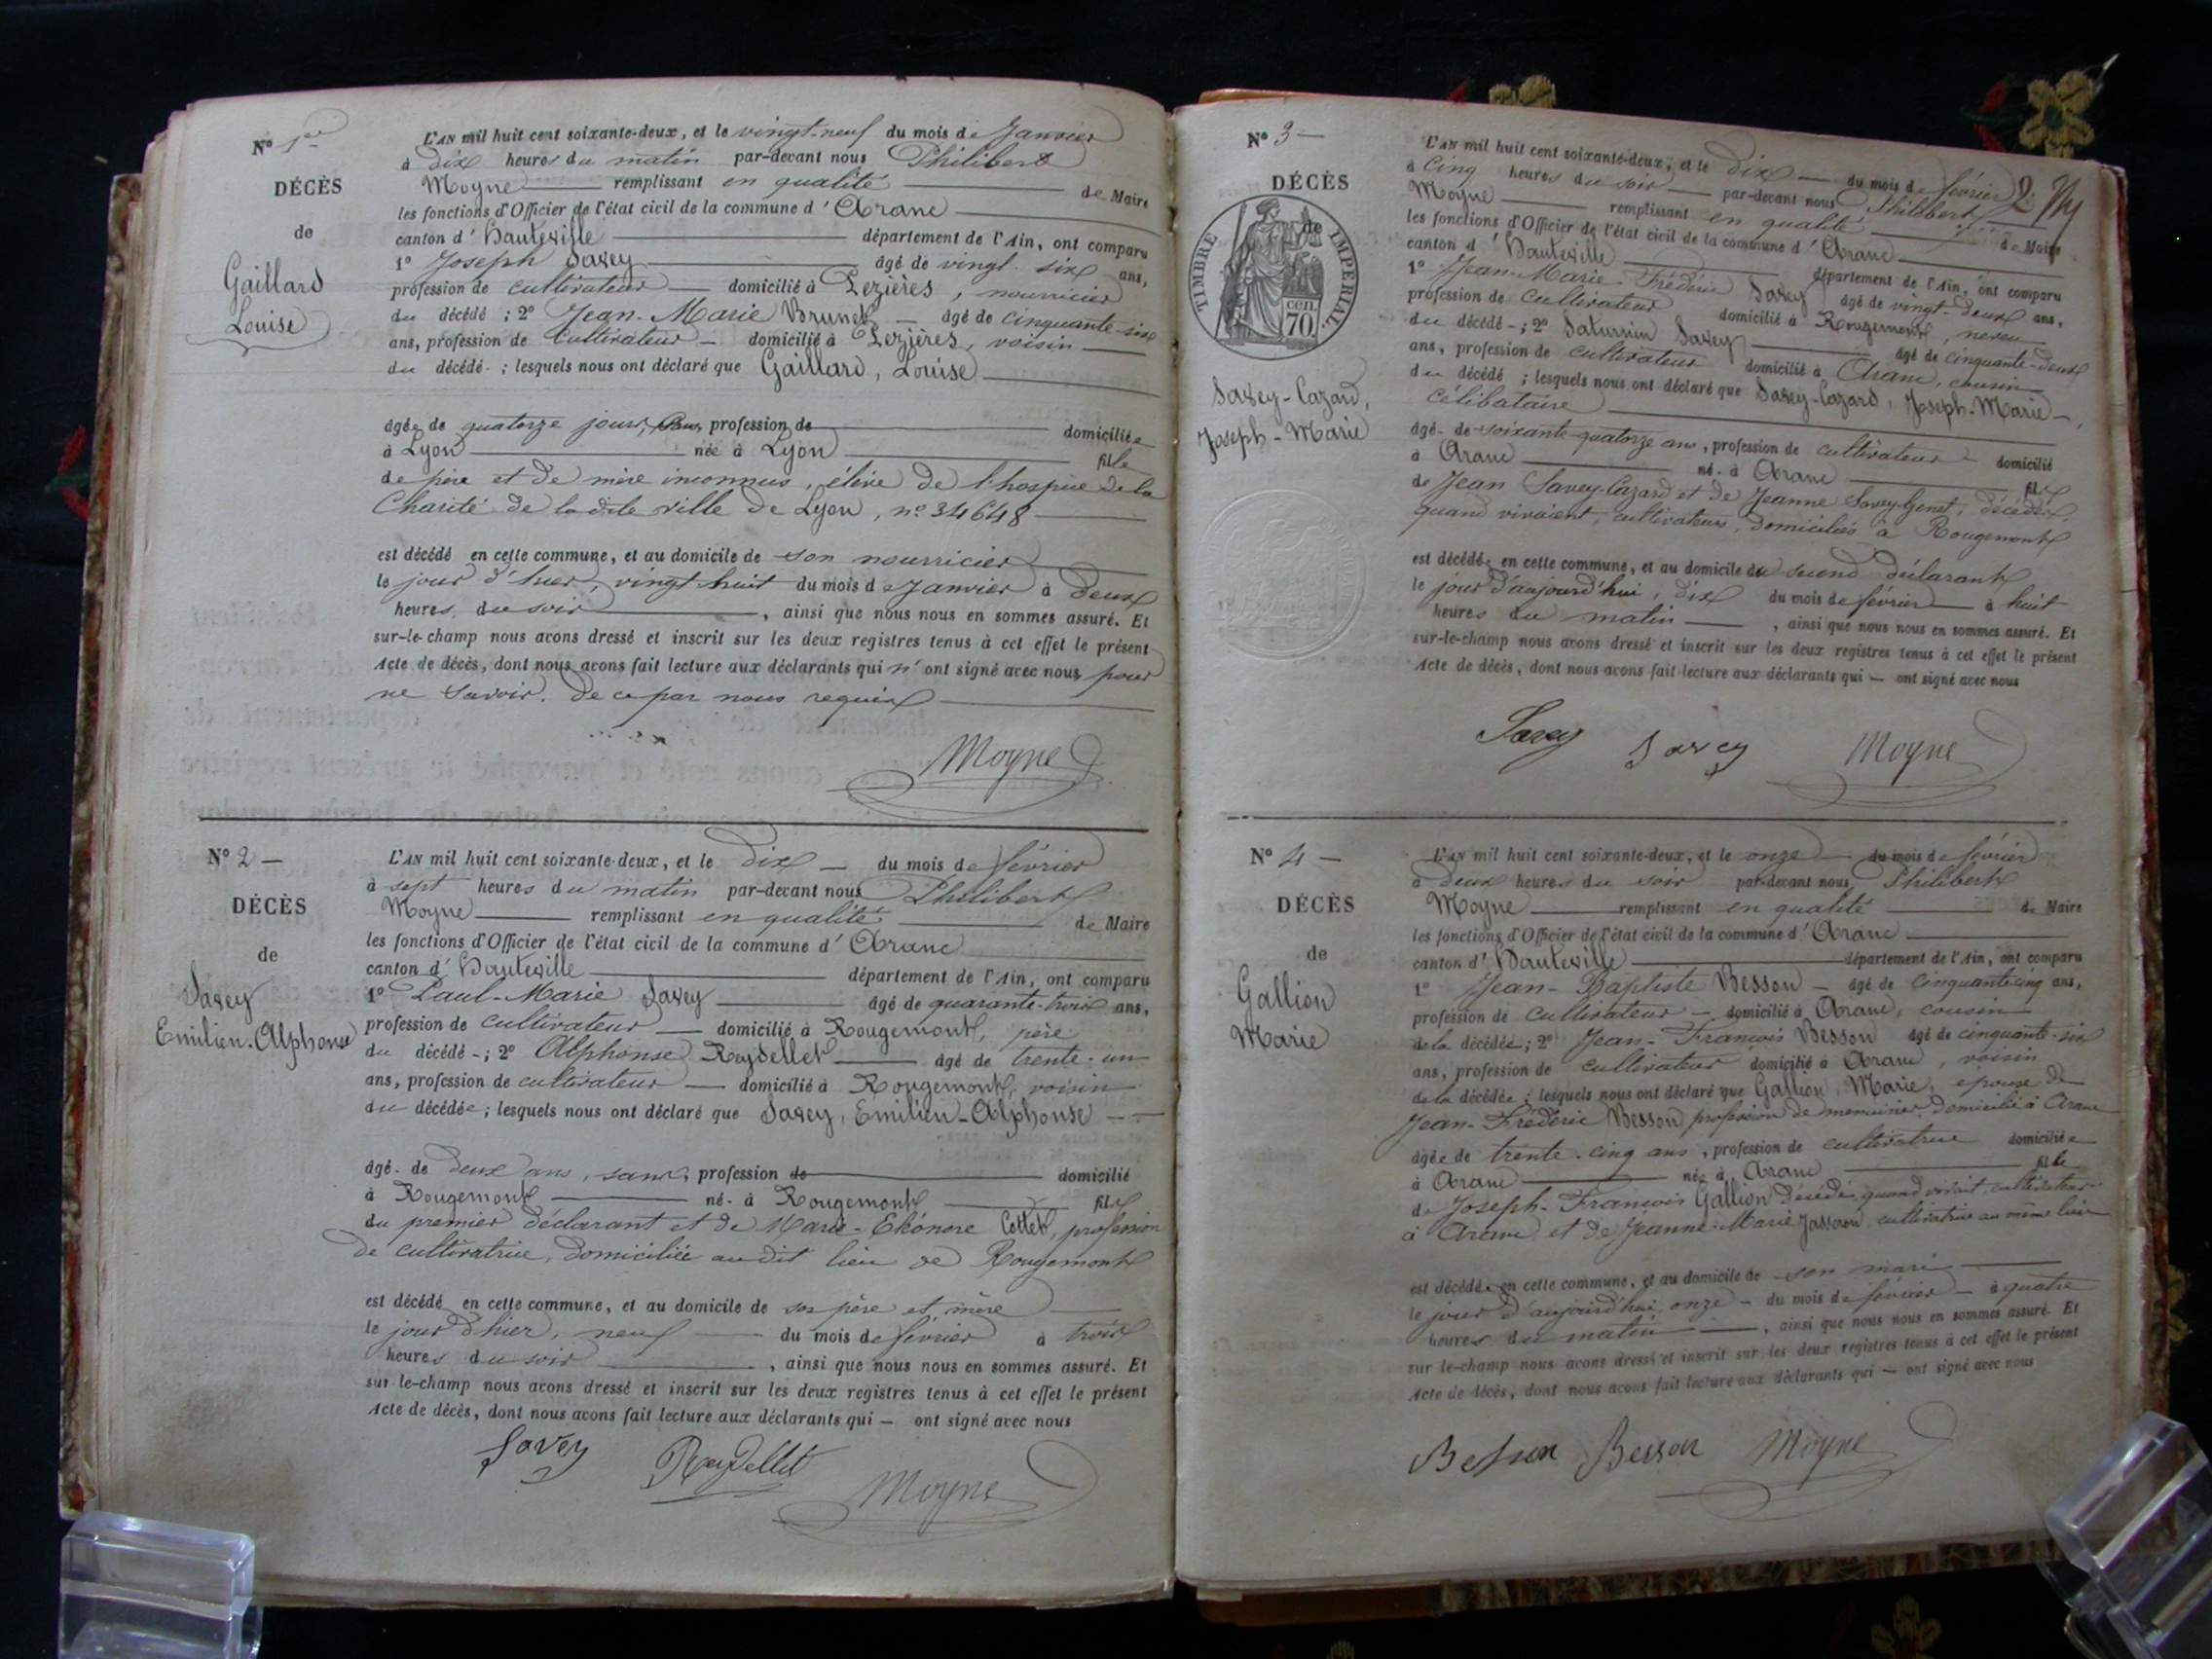 N° 1er
DÉCÈS
de
Gaillard
Louise
L'AN mil huit cent soixante-deux, et le vingt-neuf du mois de Janvier
à dix heures du matin par-devant nous Philibert
Moyne remplissant en qualité de Maire
les fonctions d'Officier de l'état civil de la commune d'Aranc
canton d'Hauteville département de l'Ain, ont comparu
1° Joseph Savey âgé de vingt-six ans,
profession de cultivateur domicilié à Lezières, nourricier
du décédé ; 2° Jean-Marie Brunet âgé de cinquante-six
ans, profession de cultivateur domicilié à Lezières, voisin
du décédé ; lesquels nous ont déclaré que Gaillard, Louise
âgée de quatorze jours, profession de domiciliée
à Lyon née à Lyon fille
de père et de mère inconnus, élève de l'hospice de la
Charité de la dite ville de Lyon, n° 34648
est décédé en cette commune, et au domicile de son nourricier
le jour d'hier, vingt-huit du mois de Janvier à deux
heures du soir, ainsi que nous nous en sommes assuré. Et
sur-le-champ nous avons dressé et inscrit sur les deux registres tenus à cet effet le présent
Acte de décès, dont nous avons fait lecture aux déclarants qui n'ont signé avec nous pour
ne savoir, de ce par nous requis
Moyne
N° 2
DÉCÈS
de
Savey
Emilien-Alphonse
L'AN mil huit cent soixante-deux, et le dix du mois de février
à sept heures du matin par-devant nous Philibert
Moyne remplissant en qualité de Maire
les fonctions d'Officier de l'état civil de la commune d'Aranc
canton d'Hauteville département de l'Ain, ont comparu
1° Paul-Marie Savey âgé de quarante-trois ans,
profession de cultivateur domicilié à Rougemont, père
du décédé ; 2° Alphonse Reydellet âgé de trente-un
ans, profession de cultivateur domicilié à Rougemont, voisin
du décédée ; lesquels nous ont déclaré que Savey, Emilien-Alphonse
âgé de deux ans, sans profession de domicilié
à Rougemont né à Rougemont fils
du premier déclarant et de Marie-Eléonore Cottet, profession
de cultivatrice, domiciliée au dit lieu de Rougemont
est décédé en cette commune, et au domicile de ses père et mère
le jour d'hier, neuf du mois de février à trois
heures du soir, ainsi que nous nous en sommes assuré. Et
sur-le-champ nous avons dressé et inscrit sur les deux registres tenus à cet effet le présent
Acte de décès, dont nous avons fait lecture aux déclarants qui — ont signé avec nous
Savey Reydellet Moyne
N° 3
DÉCÈS
de
TIMBRE IMPERIAL.
70 cen
Savey-Cazard,
Joseph-Marie
2
L'AN mil huit cent soixante-deux, et le dix du mois de février
à cinq heures du soir par-devant nous Philibert
Moyne remplissant en qualité de Maire
les fonctions d'Officier de l'état civil de la commune d'Aranc
canton d'Hauteville département de l'Ain, ont comparu
1° Jean-Marie-Frédéric Savey âgé de vingt-deux ans,
profession de cultivateur domicilié à Rougemont, neveu
du décédé ; 2° Saturnin Savey âgé de cinquante-deux
ans, profession de cultivateur domicilié à Aranc, cousin
du décédé ; lesquels nous ont déclaré que Savey-Cazard, Joseph-Marie,
célibataire
âgé de soixante-quatorze ans, profession de cultivateur domicilié
à Aranc né à Aranc fils
de Jean Savey-Cazard et de Jeanne Savey-Genet, décédés,
quand vivaient, cultivateurs, domiciliés à Rougemont
est décédé en cette commune, et au domicile du second déclarant
le jour d'aujourd'hui, dix du mois de février à huit
heures du matin, ainsi que nous nous en sommes assuré. Et
sur-le-champ nous avons dressé et inscrit sur les deux registres tenus à cet effet le présent
Acte de décès, dont nous avons fait lecture aux déclarants qui — ont signé avec nous
Savey Savey Moyne
N° 4
DÉCÈS
de
Gallion
Marie
L'AN mil huit cent soixante-deux, et le onze du mois de février
à deux heures du soir par-devant nous Philibert
Moyne remplissant en qualité de Maire
les fonctions d'Officier de l'état civil de la commune d'Aranc
canton d'Hauteville département de l'Ain, ont comparu
1° Jean-Baptiste Besson âgé de cinquante-cinq ans,
profession de cultivateur domicilié à Aranc, cousin
de la décédée ; 2° Jean-François Besson âgé de cinquante-six
ans, profession de cultivateur domicilié à Aranc, voisin
de la décédée ; lesquels nous ont déclaré que Gallion, Marie, épouse de
Jean-Frédéric Besson profession de menuisier, domicilié à Aranc
âgée de trente-cinq ans, profession de cultivatrice domiciliée
à Aranc née à Aranc fille
de Joseph-François Gallion décédé, quand vivait, cultivateur
à Aranc et de Jeanne-Marie cultivatrice au même lieu
est décédée en cette commune, et au domicile de son mari
le jour d'aujourd'hui, onze du mois de février à quatre
heures du matin, ainsi que nous nous en sommes assuré. Et
sur-le-champ nous avons dressé et inscrit sur les deux registres tenus à cet effet le présent
Acte de décès, dont nous avons fait lecture aux déclarants qui — ont signé avec nous
Besson Besson Moyne